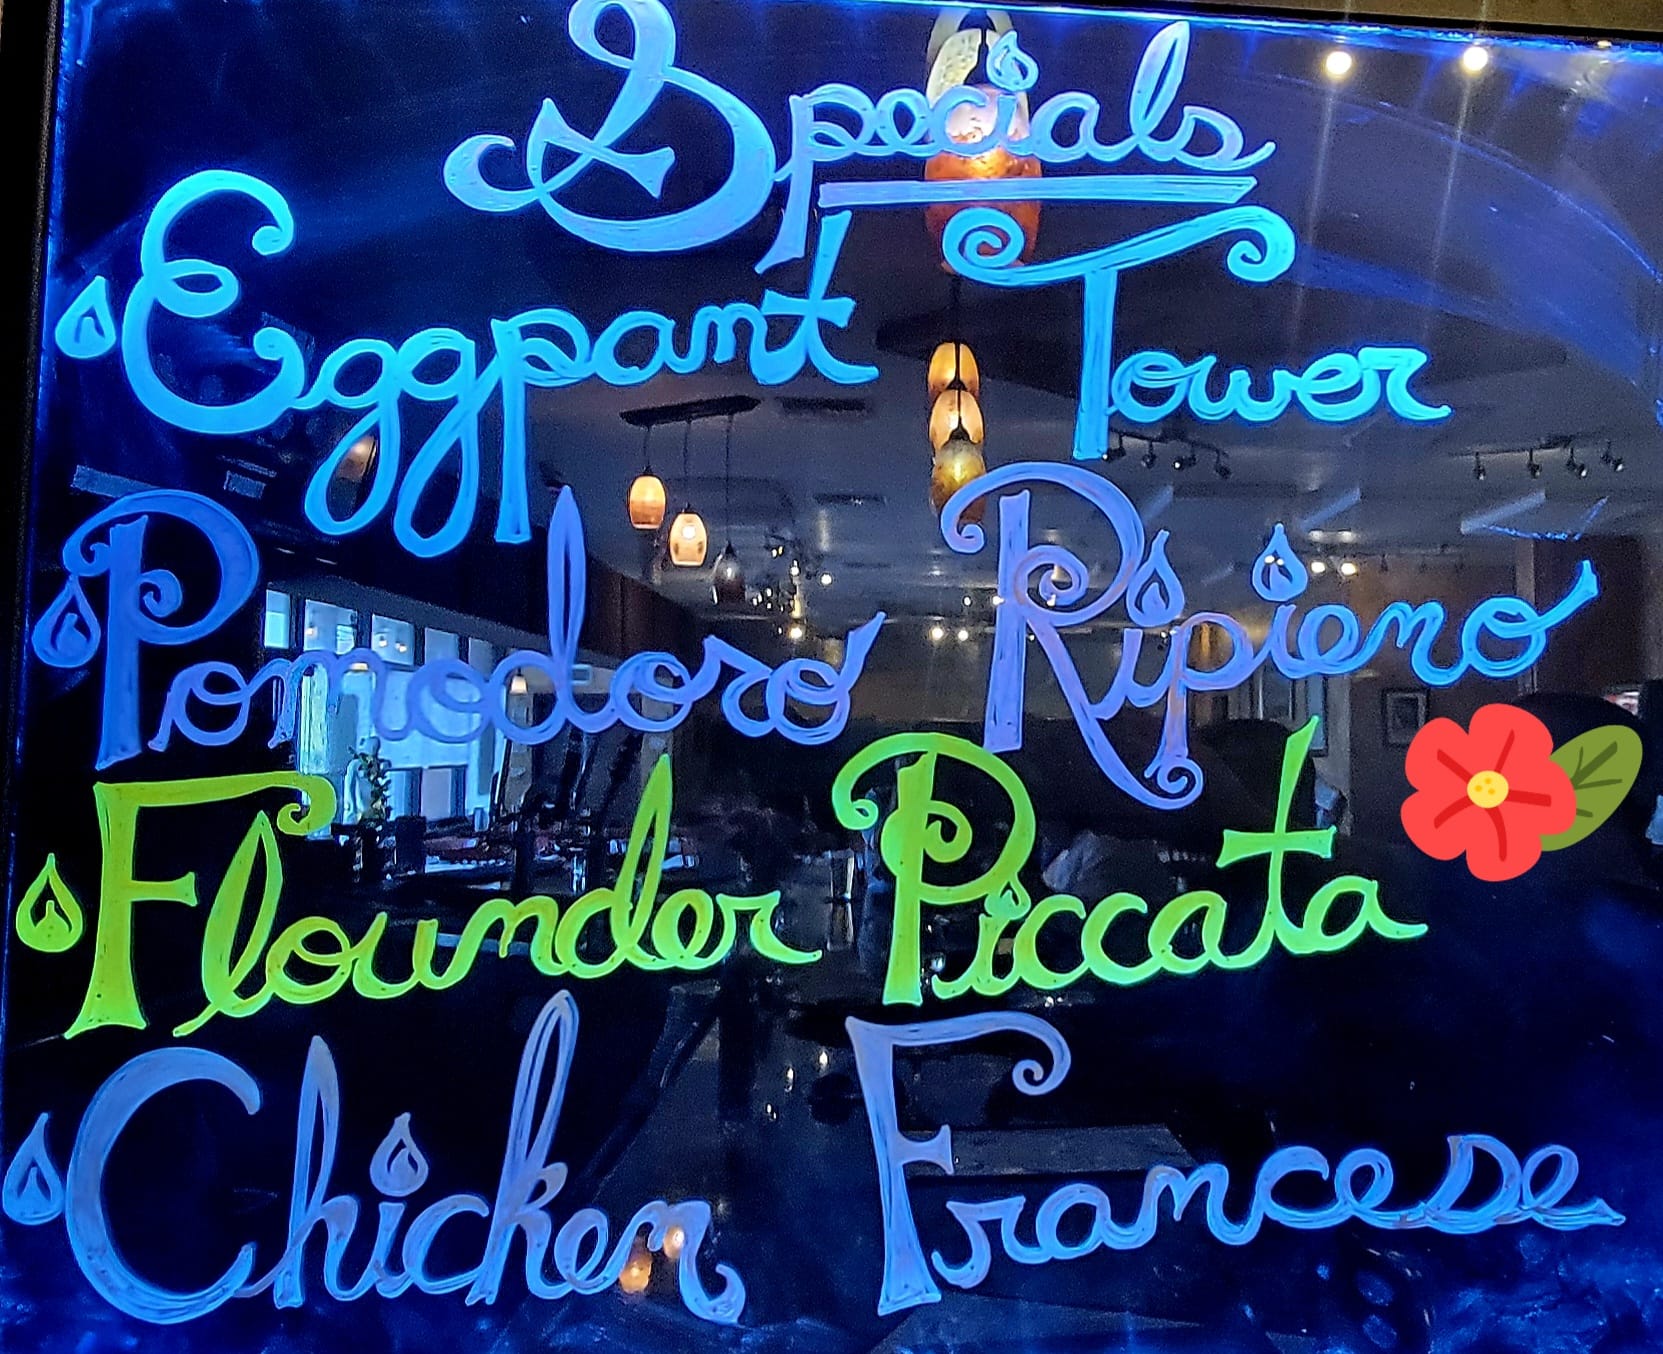 Specials
Eggpant Tower
Pomodoro Ripieno
Flounder Piccata
Chicken Francese